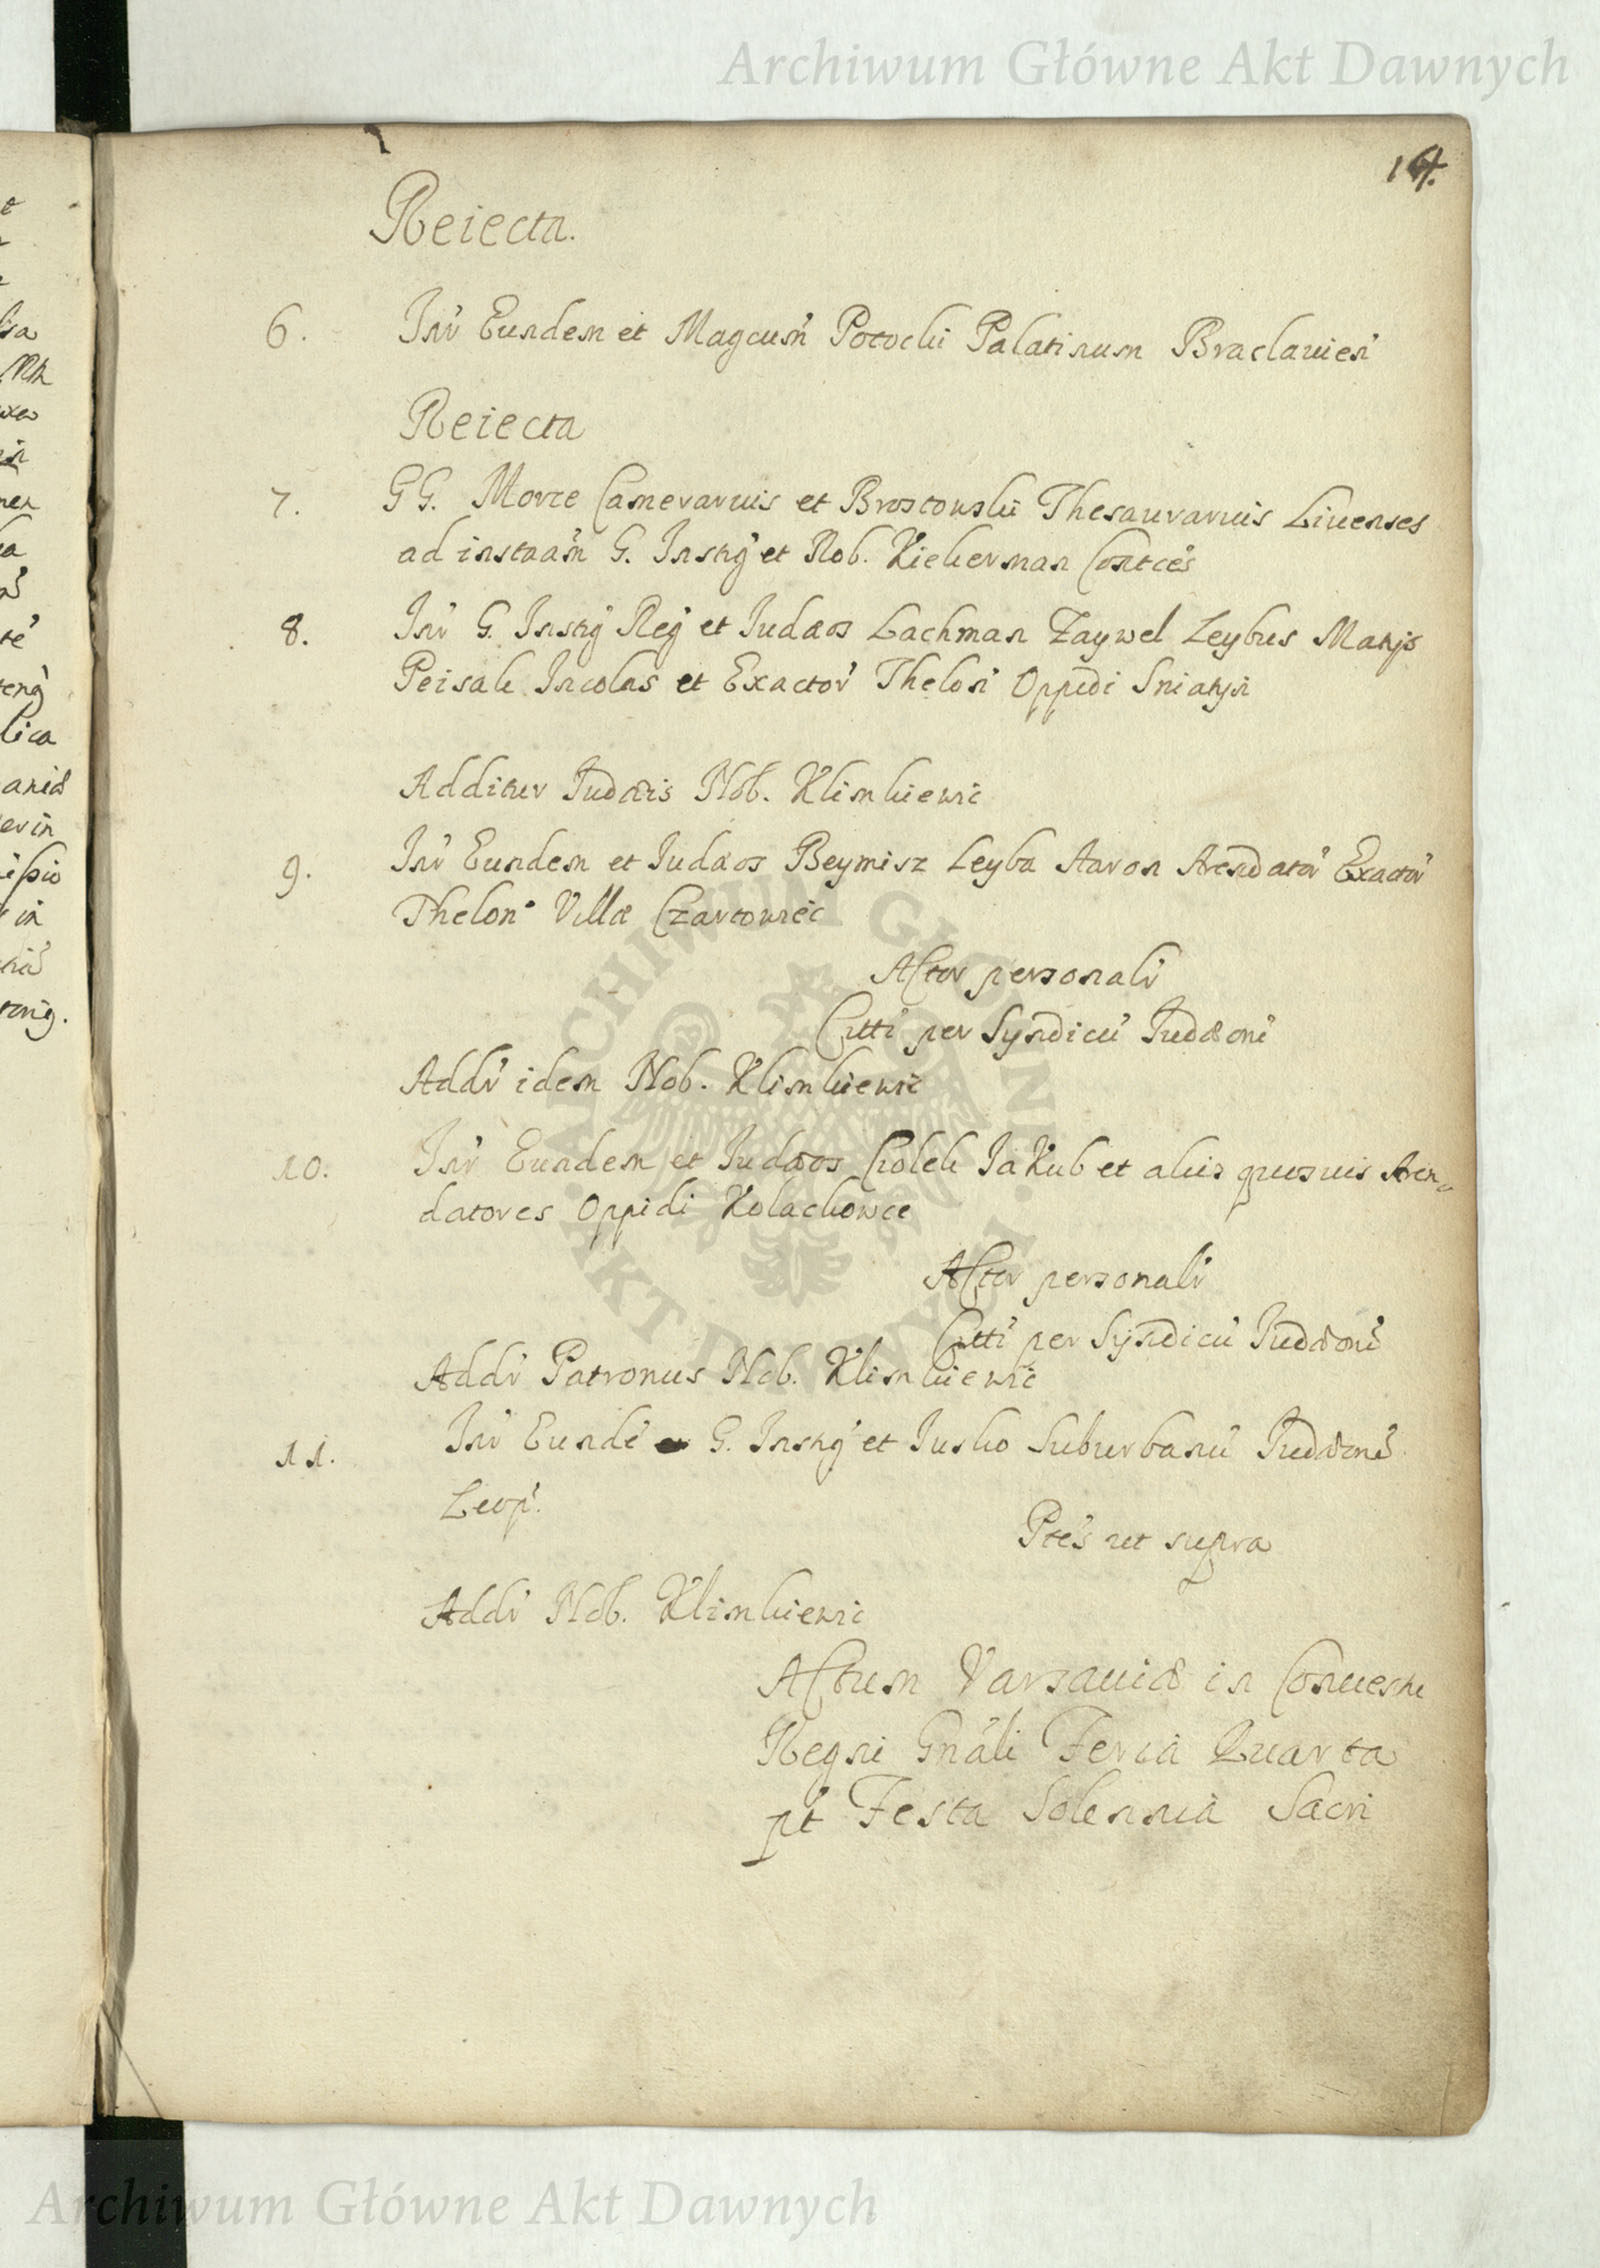 Archiwum Główne Akt Dawnych
Reiecta.
6. Inr Eundem et Magcum Potocki Palatinum Braclauien
Reiecta
7. GG. Morre Camerarius et Brostowski Thesaurarius Liuenses
ad instaam G. Instig et Nob. Kiekerman Contces
8. Inr G. Instig Reg et Iudaos Lachman Zaywel Leybus
Peisak Incolas et Exactor Thelon Oppidi Sniatyn
Additur Iudæis Nob. Klimkiewic
9. Inr Eundem et Iudæos Beymisz Leyba Aaron Arendator Exactor
Thelon Villæ Czartowiec
Actor personalr
Citti per Syndicu Iudæoru
Addr idem Nob. Klimkiewic
10. Inr Eundem et Iudæos Iakub et alios quosuis Aren-
datores Oppidi Kolachowce
Actor personalr
Citti per Syndicu Iudæoru
Addr Patronus Nob. Klimkiewic
11. Inr Eunde G. Instig et Iusko Suburbanu Iudæoru
Leop.
Ptes ut supra
Addr Nob. Klimkiewic
Actum Varsauiæ in Conuentu
Regni Gnali Feria Quarta
pt Festa Solennia Sacri
ARCHIWUM GŁÓWNE AKT DAWNYCH
Archiwum Główne Akt Dawnych